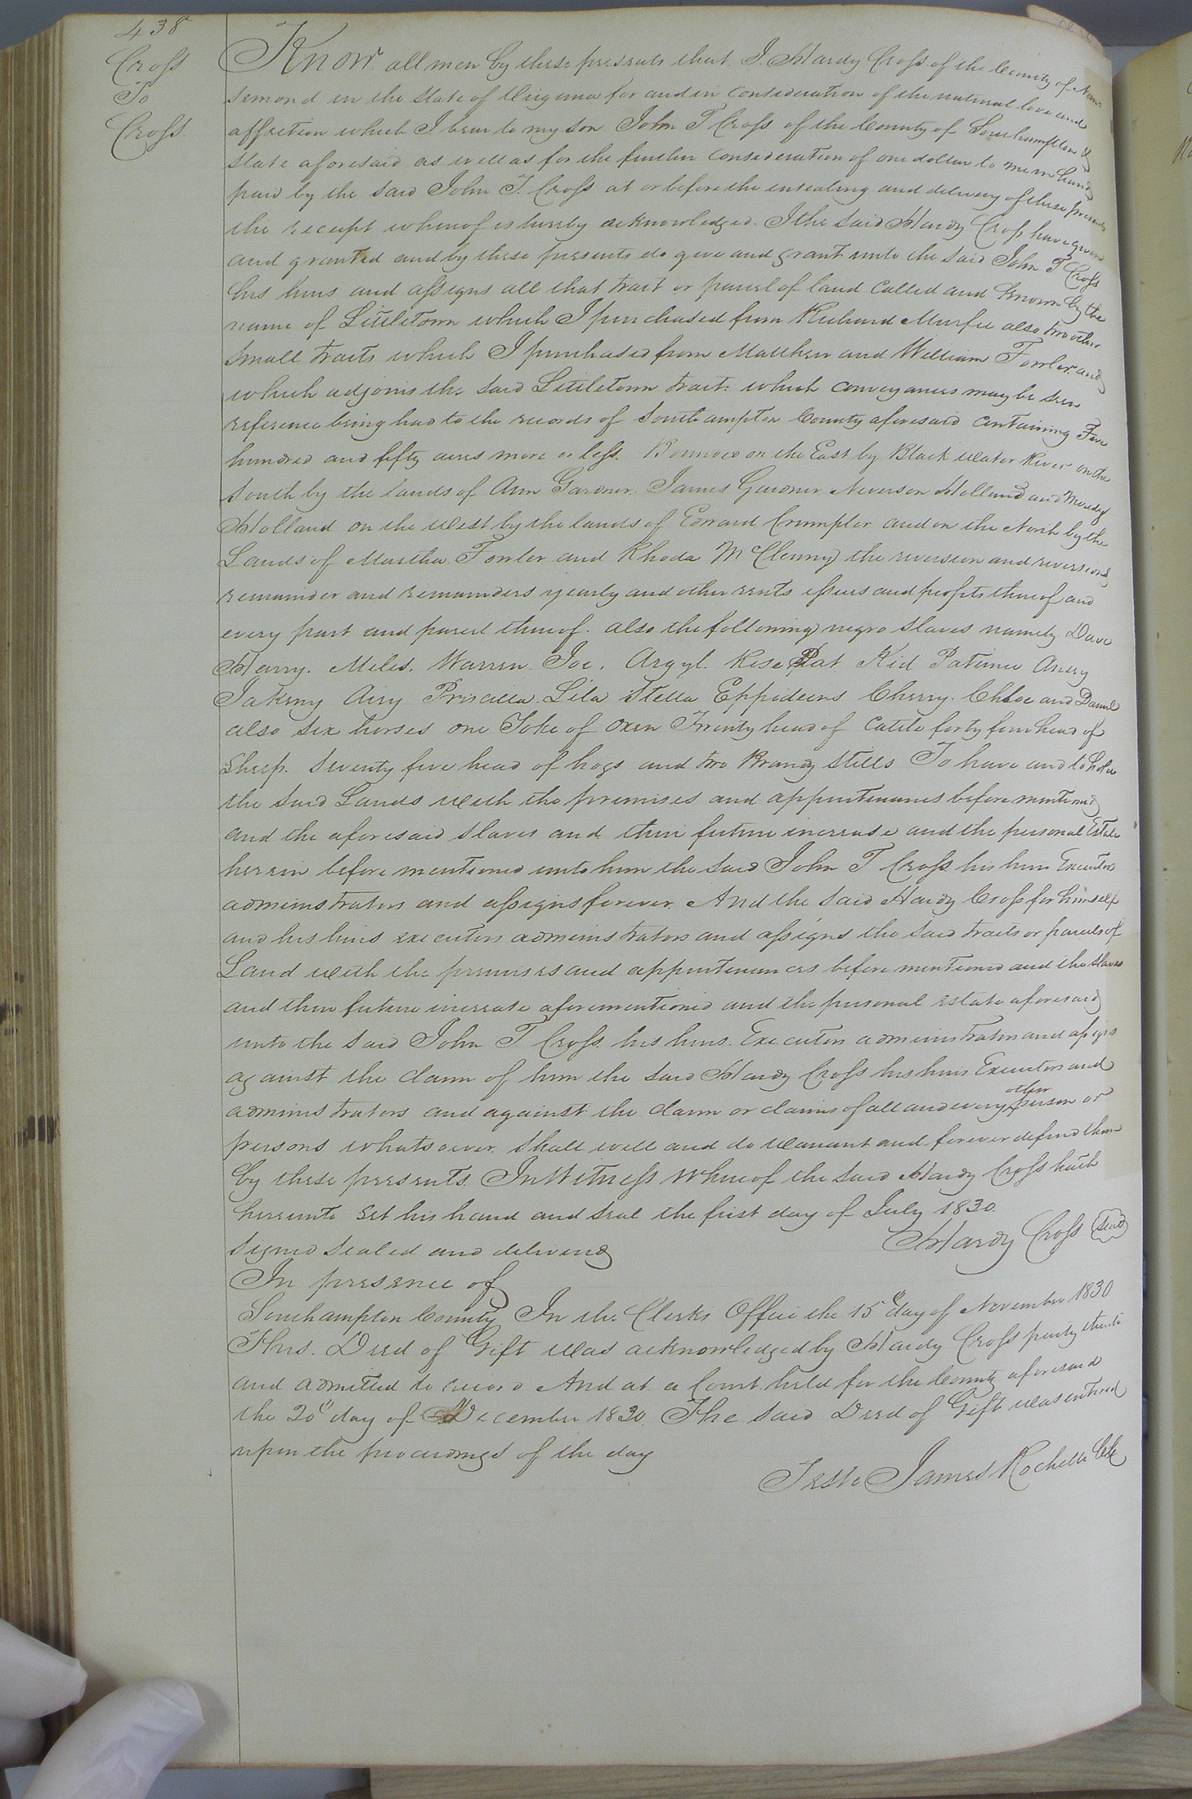 438
Cross
To
Cross
Know all men by these presents that I Hardy Cross of the County of Nan
semond in the State of Virginia for and in Consideration of the natural love and
affection which I bear to my son John T Cross of the County of Southampton &
State aforesaid as well as for the further Consideration of one dollar to me in hand
paid by the said John T. Cross at or before the ensealing and delivery of these presents
the receipt whereof is hereby acknowledged. I the said Hardy Cross have given
and granted and by these presents do give and grant unto the said John T Cross
his heirs and assigns all that tract or parcel of land Called and known by the
name of Littletown which I purchased from Richard Murfee also two other
small tracts which I purchased from Matthew and William Fowler and
which adjoins the said Littletown tract which conveyances may be seen
reference being had to the records of Southampton County aforesaid Containing Five
hundred and fifty acres more or less. Bounded on the East by Black Water River on the
South by the lands of Ann Gardner James Gardner Neverson Holland and
Holland on the West by the lands of Edward Crumpler and on the North by the
Lands of Martha Fowler and Rhoda McClenny the reversion and reversions
remainder and remainders yearly and other rents issues and profits thereof and
every part and parcel thereof. also the following negro slaves namely Dave
Harry. Miles. Warren Joe. Argyl. Rose Pat Kid Patience
Avey Priscilla. Lila Stella Cherry. Chloe and Daniel
also six horses one Yoke of Oxen Twenty head of Cattle forty four head of
Sheep. Seventy five head of hogs and two Brandy Stills To have and to hold
the said Lands with the premises and appurtenances before mentioned
and the aforesaid slaves and their future increase and the personal Estate
herein before mentioned unto him the said John T Cross his heirs Executors
administrators and assigns forever. And the said Hardy Cross for himself
and his heirs executors administrators and assigns the said tracts or parcels of
Land with the premises and appurtenances before mentioned and the slaves
and their future increase aforementioned and the personal estate aforesaid
unto the said John T Cross his heirs. Executors administrators and assigns
against the claim of him the said Hardy Cross his heirs Executors and
administrators and against the claim or claims of all and every other person or
persons whatsoever shall will and do warrant and forever defend them
by these presents. In Witness whereof the said Hardy Cross hath
hereunto set his hand and seal the first day of July 1830.
Signed Sealed and delivered
Hardy Cross Seal
In presence of
Southampton County In the Clerks Office the 15th day of November 1830
This. Deed of Gift was acknowledged by Hardy Cross party thereto
and admitted to record And at a Court held for the County aforesaid
the 20th day of December 1830 The said Deed of Gift was entered
upon the proceedings of the day
Teste James Rochelle Clk